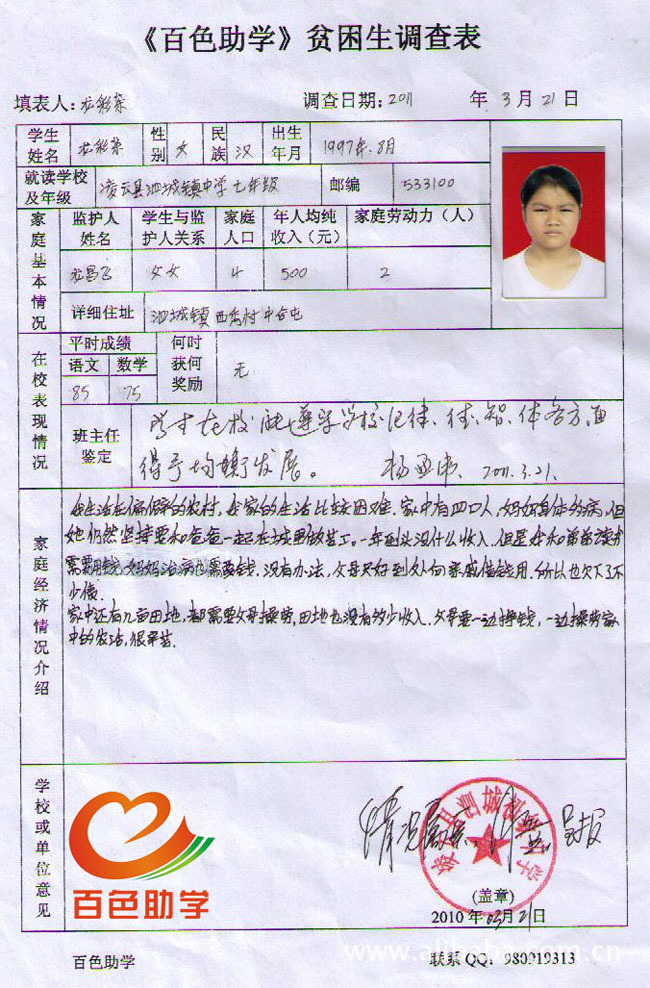 《百色助学》贫困生调查表
填表人：龙彩菜 调查日期：2011 年 3月21日
学生姓名 龙彩菜 性别 女 民族 汉 出生年月 1997年.8月
就读学校及年级 凌云县泗城镇中学七年级 邮编 533100
家庭基本情况 监护人姓名 学生与监护人关系 家庭人口 年人均纯收入（元） 家庭劳动力（人）
龙昌飞 父女 4 500 2
详细住址 泗城镇西秀村中台屯
在校表现情况 平时成绩 何时获何奖励 无
语文 数学
85 75
班主任鉴定 学生在校能遵守学校纪律、德、智、体各方面
得予均衡发展。 2011.3.21.
家庭经济情况介绍
我生活在偏僻的农村，我家的生活比较困难.家中有四口人，妈妈身体多病，但
她仍然坚持要和爸爸一起在城里做苦工。一年到头没什么收入.但是姓和弟弟读书
需要用钱，妈妈治病也需要钱，没有办法，父母只好到处向亲戚借钱用.所以也欠下了不
少债.
家中还有几亩田地，都需要父母操劳，田地也没有多少收入.父母要一边挣钱，一边操劳家
中的农活，很辛苦.
学校或单位意见
情况属实，
呈报
百色助学
(盖章)
2010 年03月21日
百色助学 联系 QQ：980919313
www.alibaba.com.cn